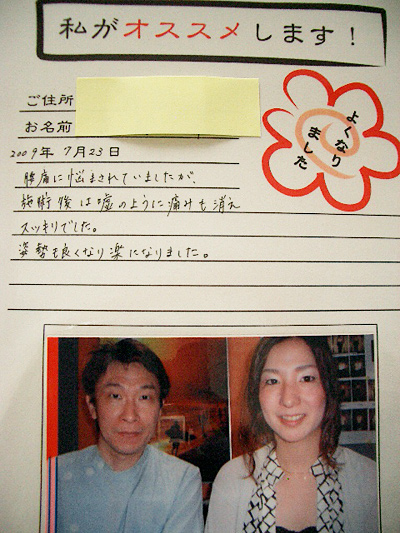 私がオススメします！
ご住所
お名前
よくなり
ました
2009年 7月23日
腰痛に悩まされていましたが、
施術後は嘘のように痛みも消え
スッキリでした。
姿勢も良くなり楽になりました。